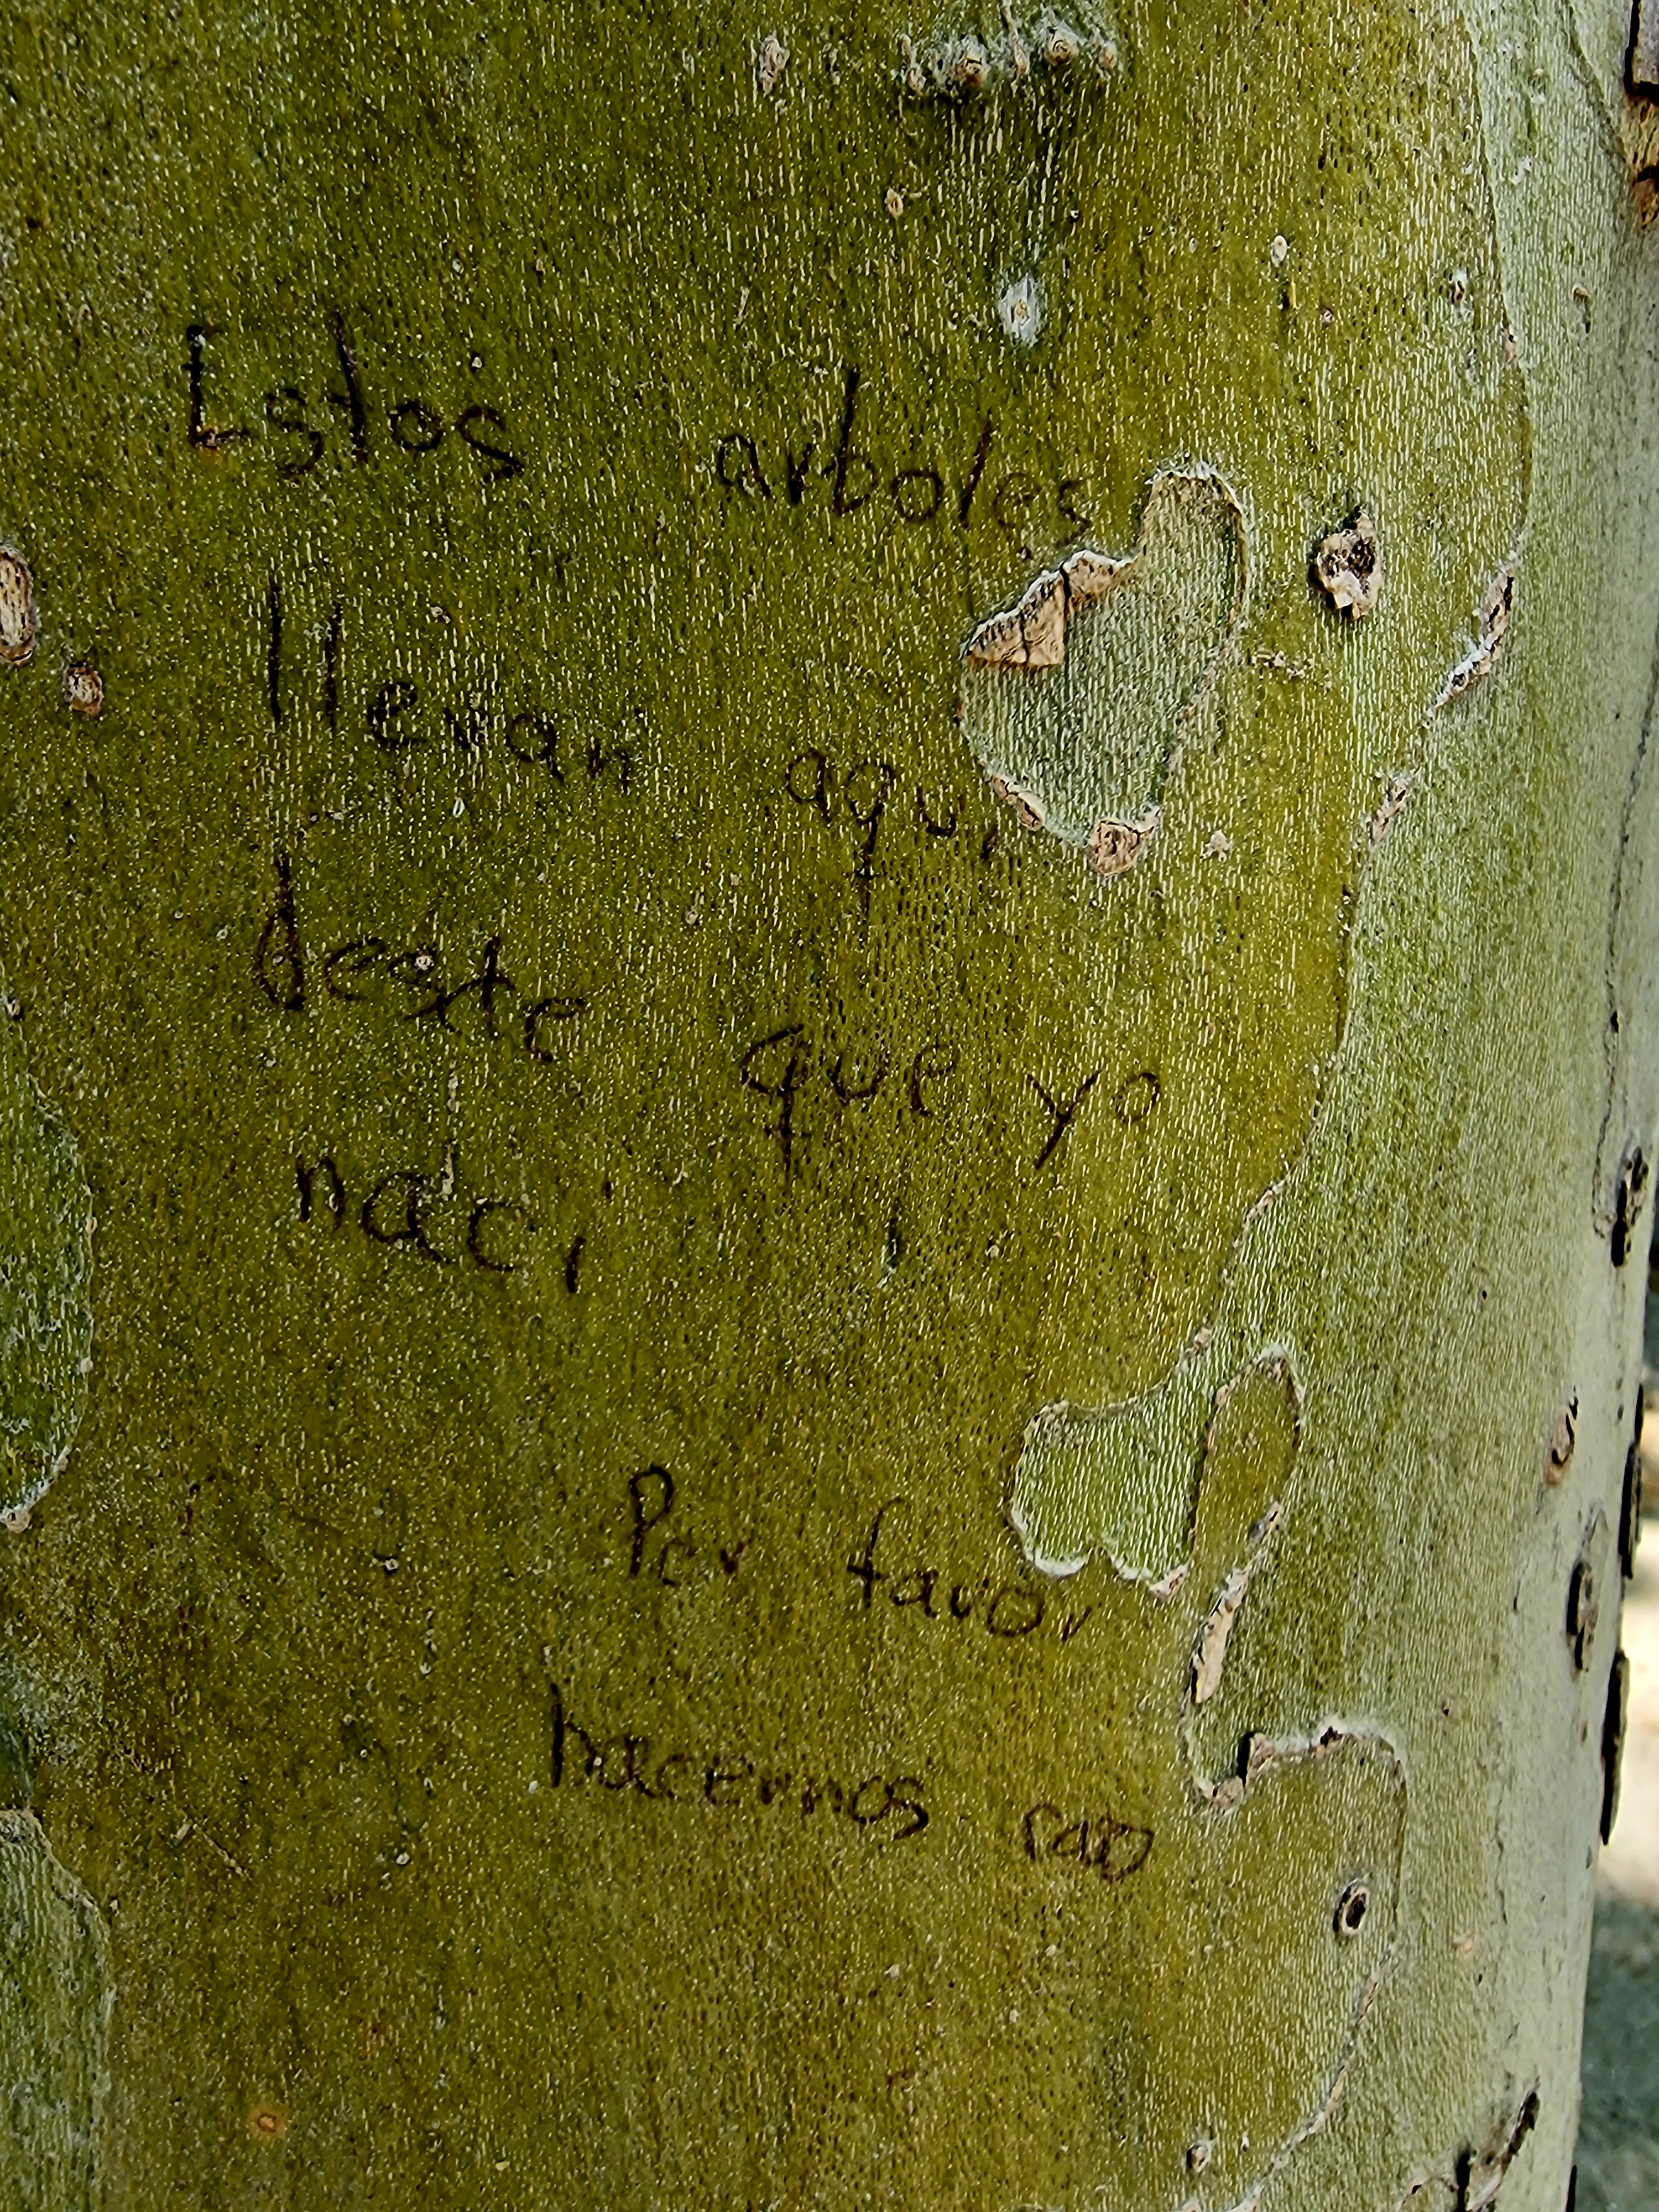 Estos arboles
llevan aqui
deste que yo
naci
Por favor
hacernos caso